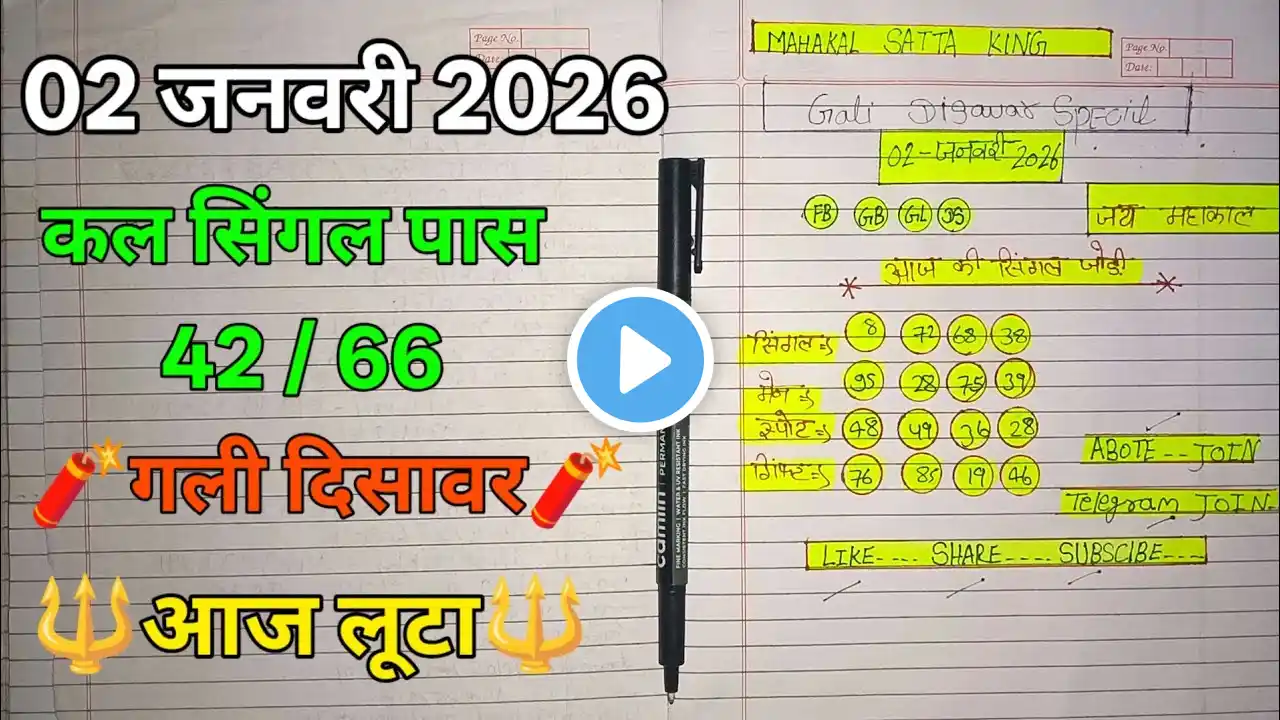 Page No.
Date:
02 जनवरी 2026
कल सिंगल पास
42 / 66
गली दिसावर
आज लूटा
camlin PERMAN
MAHAKAL SATTA KING
Page No.
Date:
Gali Disawar Special
02-जनवरी 2026
FB GB GL DS
जय महाकाल
आज की सिंगल जोड़ी
सिंगल 8 72 68 38
मेन 95 28 75 39
स्पोट 48 49 36 28
गिफ्ट 76 85 19 46
ABOTE -- JOIN
Telegram JOIN-
LIKE---- SHARE----- SUBSCIBE---